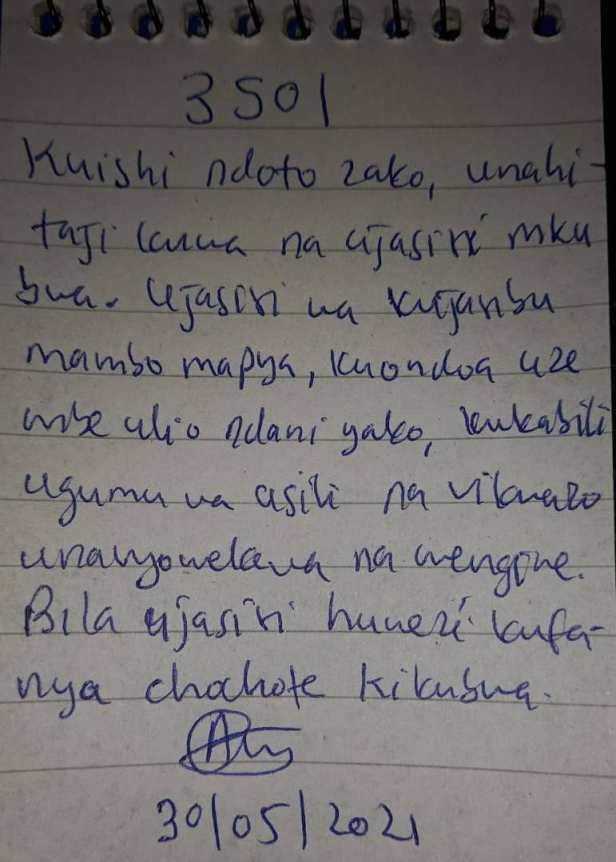 3501
Kuishi ndoto zako, unahi-
taji kuwa na ujasiri mku
bwa. Ujasiri wa kujaribu
mambo mapya, kuondoa uze
mbe ulio ndani yako, kukabili
ugumu wa asili na vikwazo
unavyowekewa na wengine.
Bila ujasiri huwezi kufa-
nya chochote kikubwa.
30/05/2021